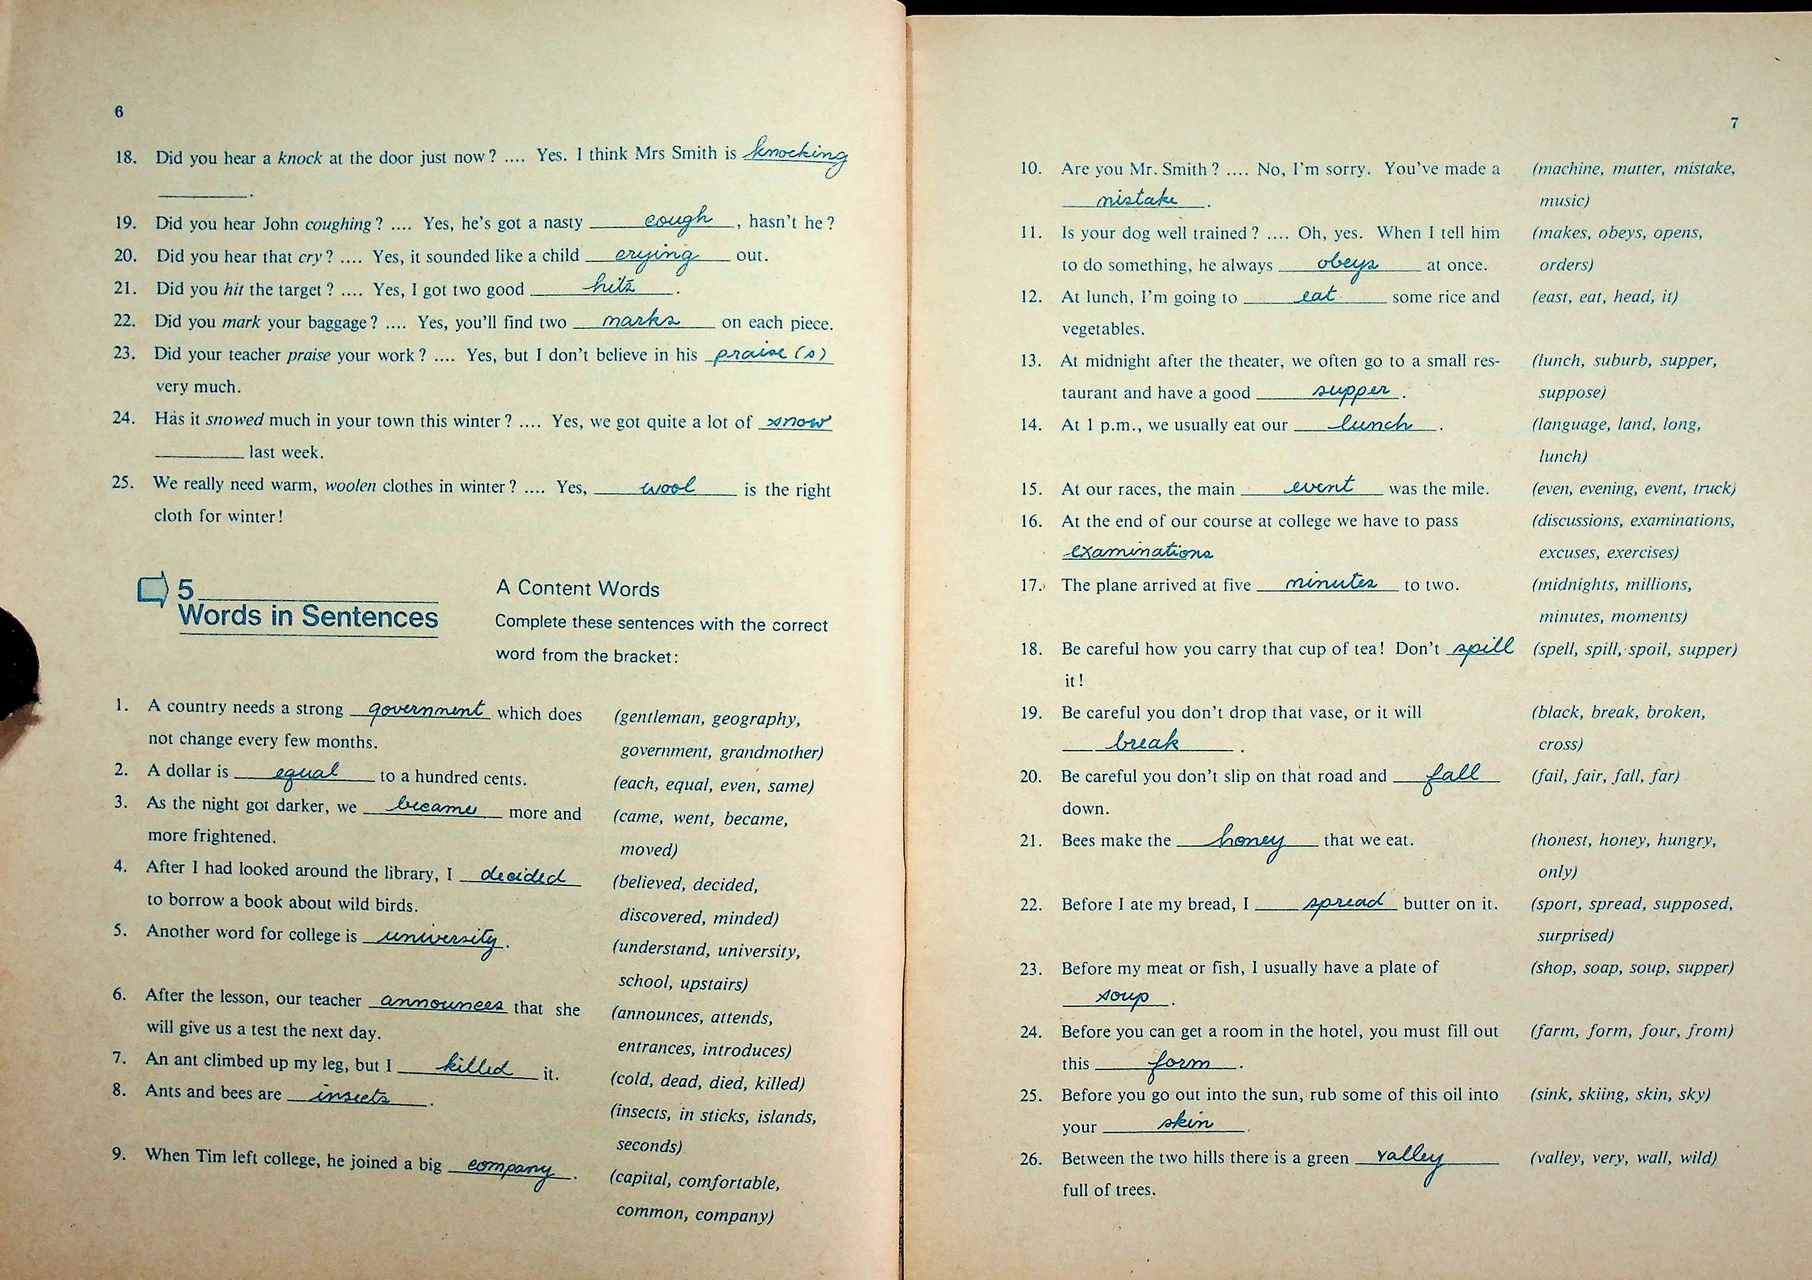 6
18. Did you hear a knock at the door just now? .... Yes. I think Mrs Smith is knocking
________.
19. Did you hear John coughing? .... Yes, he's got a nasty cough, hasn't he?
20. Did you hear that cry? .... Yes, it sounded like a child crying out.
21. Did you hit the target? .... Yes, I got two good hits.
22. Did you mark your baggage? .... Yes, you'll find two marks on each piece.
23. Did your teacher praise your work? .... Yes, but I don't believe in his praise (s)
very much.
24. Has it snowed much in your town this winter? .... Yes, we got quite a lot of snow
________ last week.
25. We really need warm, woolen clothes in winter? .... Yes, wool is the right
cloth for winter!
5
Words in Sentences
A Content Words
Complete these sentences with the correct
word from the bracket:
1. A country needs a strong government which does (gentleman, geography,
not change every few months. government, grandmother)
2. A dollar is equal to a hundred cents. (each, equal, even, same)
3. As the night got darker, we became more and (came, went, became,
more frightened. moved)
4. After I had looked around the library, I decided (believed, decided,
to borrow a book about wild birds. discovered, minded)
5. Another word for college is university. (understand, university,
school, upstairs)
6. After the lesson, our teacher announces that she (announces, attends,
will give us a test the next day. entrances, introduces)
7. An ant climbed up my leg, but I killed it. (cold, dead, died, killed)
8. Ants and bees are insects. (insects, in sticks, islands,
seconds)
9. When Tim left college, he joined a big company. (capital, comfortable,
common, company)
7
10. Are you Mr. Smith? .... No, I'm sorry. You've made a (machine, matter, mistake,
mistake. music)
11. Is your dog well trained? .... Oh, yes. When I tell him (makes, obeys, opens,
to do something, he always obeys at once. orders)
12. At lunch, I'm going to eat some rice and (east, eat, head, it)
vegetables.
13. At midnight after the theater, we often go to a small res- (lunch, suburb, supper,
taurant and have a good supper. suppose)
14. At 1 p.m., we usually eat our lunch. (language, land, long,
lunch)
15. At our races, the main event was the mile. (even, evening, event, truck)
16. At the end of our course at college we have to pass (discussions, examinations,
examinations excuses, exercises)
17. The plane arrived at five minutes to two. (midnights, millions,
minutes, moments)
18. Be careful how you carry that cup of tea! Don't spill (spell, spill, spoil, supper)
it!
19. Be careful you don't drop that vase, or it will (black, break, broken,
break. cross)
20. Be careful you don't slip on that road and fall (fail, fair, fall, far)
down.
21. Bees make the honey that we eat. (honest, honey, hungry,
only)
22. Before I ate my bread, I spread butter on it. (sport, spread, supposed,
surprised)
23. Before my meat or fish, I usually have a plate of (shop, soap, soup, supper)
soup.
24. Before you can get a room in the hotel, you must fill out (farm, form, four, from)
this form.
25. Before you go out into the sun, rub some of this oil into (sink, skiing, skin, sky)
your skin.
26. Between the two hills there is a green valley (valley, very, wall, wild)
full of trees.